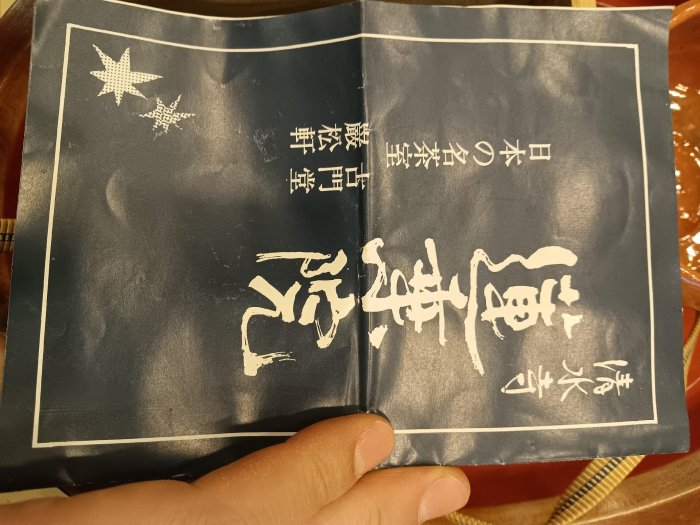 清水寺
蓮乗院
日本の名茶室
古門堂
巌松軒